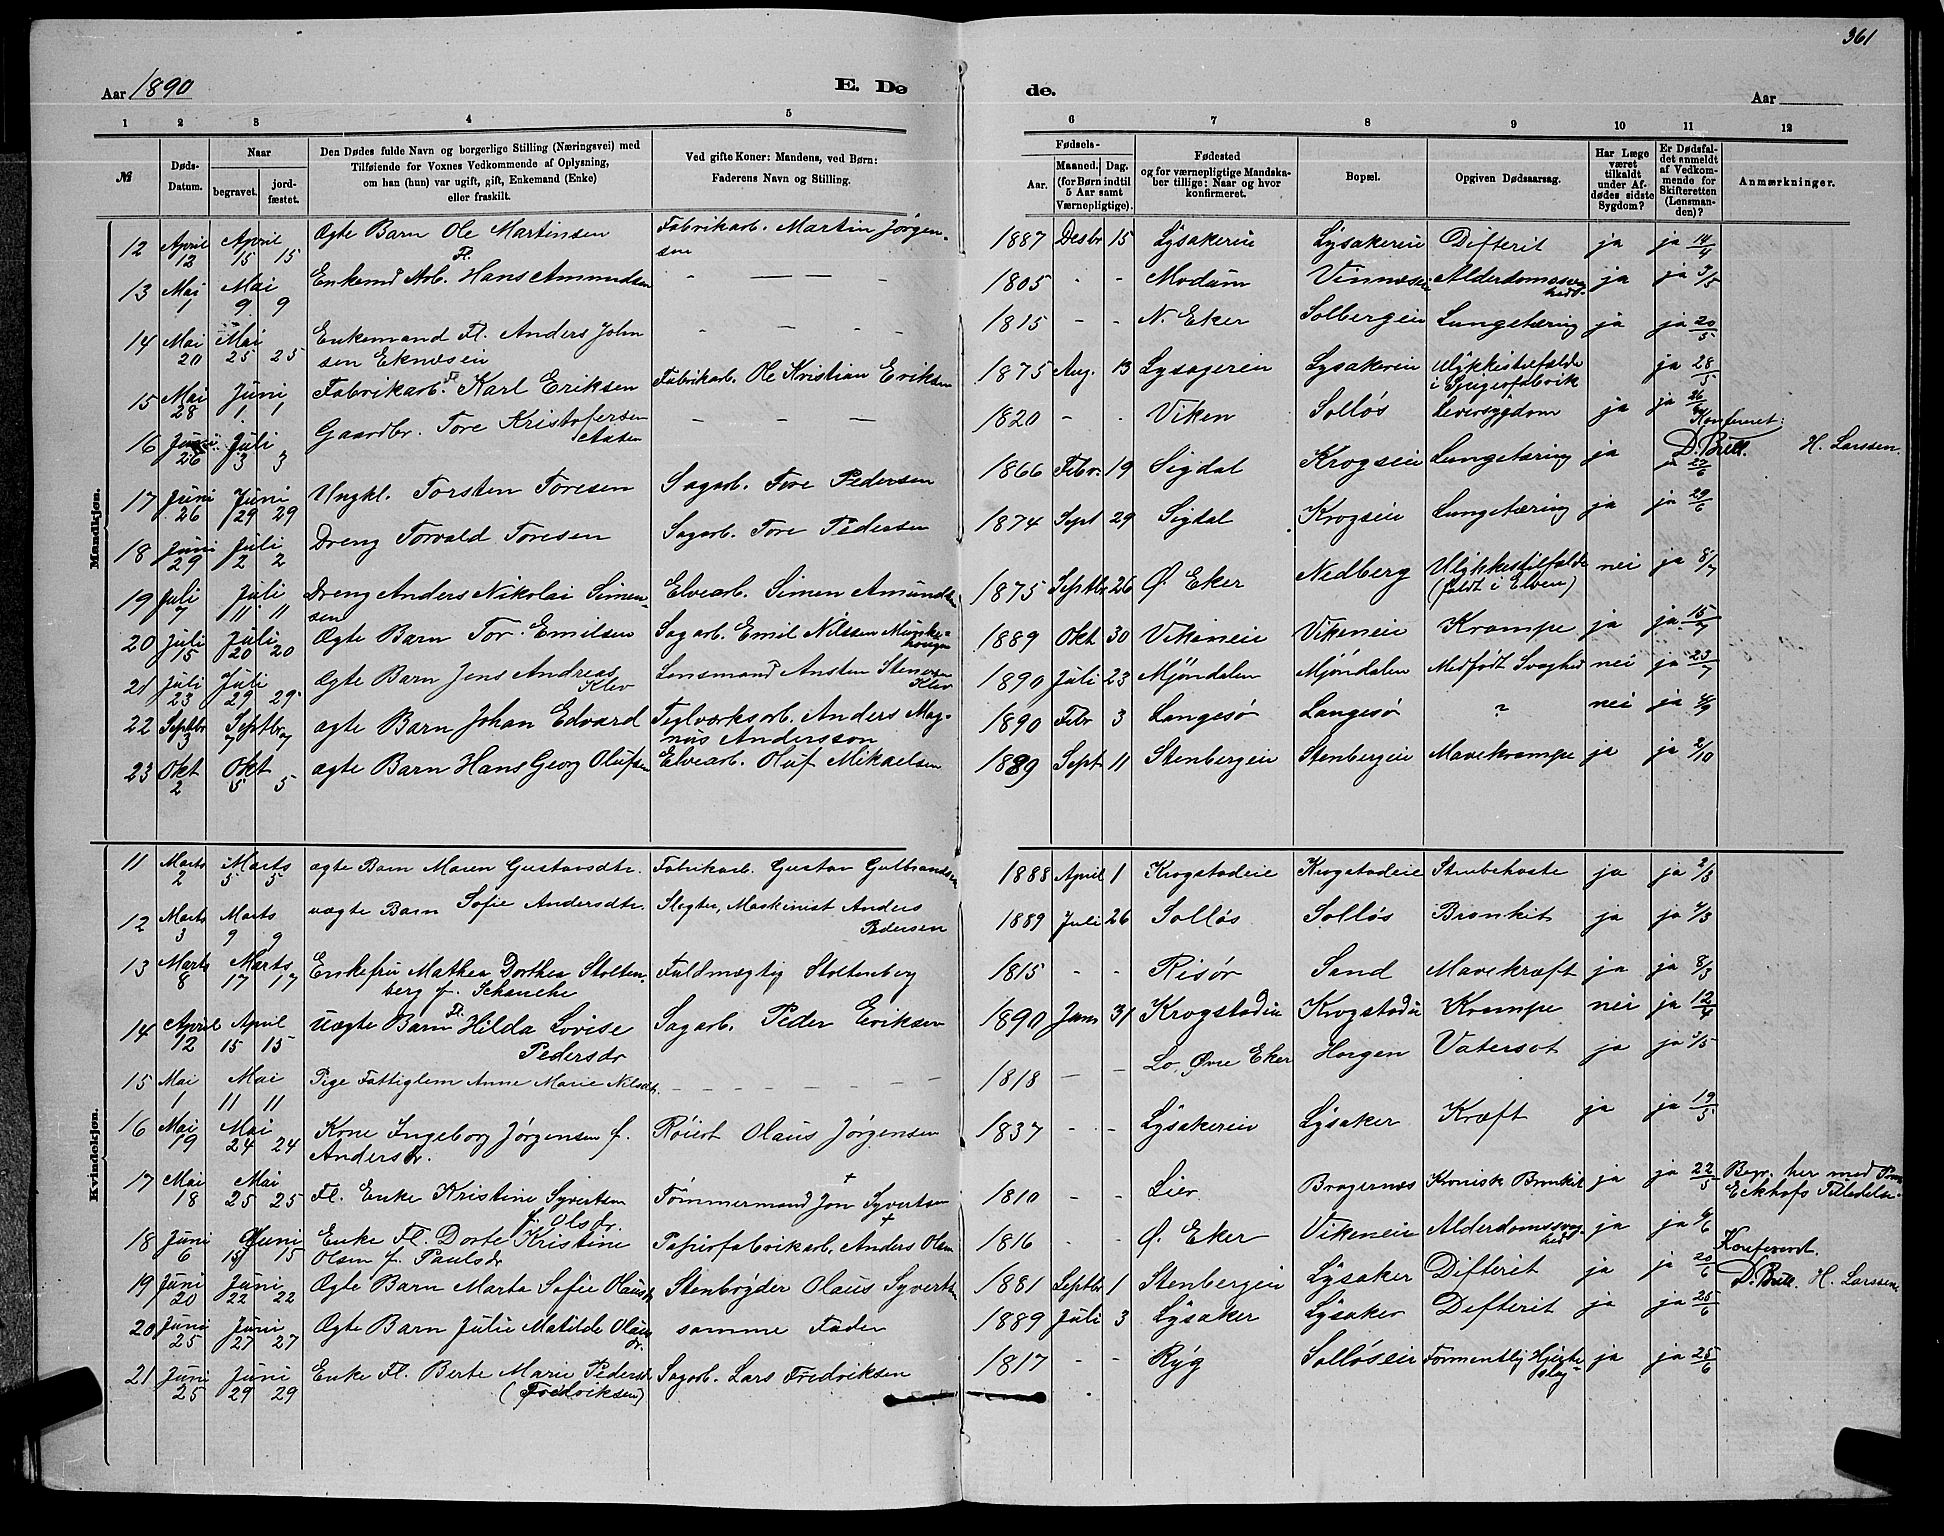 361
Aar 1890
E. Dø
de.
Aar
1 2 3 4 5 6 7 8 9 10 11 12
№
Døds-Datum.
Naar
begravet.
jord-fæstet.
Den Dødes fulde Navn og borgerlige Stilling (Næringsvei) med
Tilføiende for Voxnes Vedkommende af Oplysning,
om han (hun) var ugift, gift, Enkemand (Enke)
eller fraskilt.
Ved gifte Koner: Mandens, ved Børn:
Faderens Navn og Stilling.
Fødsels-
Aar.
Maaned. Dag.
(for Børn indtil
5 Aar samt
Værnepligtige).
Fødested
og for værnepligtige Mandska-
ber tillige: Naar og hvor
konfirmeret.
Bopæl.
Opgiven Dødsaarsag.
Har Læge
været
tilkaldt
under Af-
dødes sidste
Sygdom?
Er Dødsfal-
det anmeldt
af Vedkom-
mende for
Skifteretten
(Lensman-
den)?
Anmærkninger.
Mandkjøn.
12 April 12 April 15 15 Ægte Barn Ole Martinsen Fabrikarb. Martin Jörgensen 1887 Desbr 15 Lysakereie Lysakereie Difterit ja ja 14/4
13 Mai 1 Mai 9 9 Enkemd Fl. Arb. Hans Amundsen — — — 1805 - - Modum Vinnæseie Alderdomssvaghed ja ja 3/5
14 Mai 20 Mai 25 25 Enkemand Fl. Anders Johnsen Eknæseie - - - - 1815 - - N. Eker Solbergeie Lungetæring ja ja 20/5
15 Mai 28 Juni 1 1 Fabrikarb. Fl. Karl Eriksen Fabrikarb. Ole Kristian Eriksen 1875 Aug. 13 Lysagereie Lysakereie Ulykkestilfælde i ja 28/5
16 Juni 26 Juli 3 3 Gaardbr. Tore Kristofersen — — — 1820 - - Viken Solløs Leversygdom ja ja 26/6
Konfereret: D. Bull. H. Larssen.
17 Juni 26 Juni 29 29 Ungkl. Torsten Toresen Sagarb. Tore Pedersen 1866 Febr. 19 Sigdal Krogseie Lungetæring ja ja 27/6
18 Juni 29 Juli 2 2 Dreng Torvald Toresen Sagarb. Tore Pedersen 1874 Sept 29 Sigdal Krogseie Lungetæring ja ja 29/6
19 Juli 7 Juli 11 11 Dreng Anders Nikolai Simensen Elvearb. Simen Amundsen 1875 Septbr 26 Ø. Eker Nedberg Ulykkestilfælde (faldt i Elven) nei ja 8/7
20 Juli 15 Juli 20 20 Ægte Barn Tor Emilsen Sagarb. Emil Nilssen 1889 Okt 30 Vikeneie Vikeneie Krampe ja ja 15/7
21 Juli 23 Juli 29 29 Ægte Barn Jens Andreas Klev Lensmand Ansten Klev 1890 Juli 23 Mjöndalen Mjöndalen Medfödt Svaghed nei ja 23/7
22 Septbr 3 Septbr 7 7 ægte Barn Johan Edvard Teglværksarb. Anders Magnus Andersson 1890 Febr 3 Langesø Langesø ? nei ja 4/9
23 Okt 2 Okt 5 5 ægte Barn Hans Georg Olufsen Elvearb. Oluf Mikaelsen 1889 Sept 11 Stenbergeie Stenbergeie Mavekrampe ja ja 2/10
Kvindekjøn.
11 Marts 2 Marts 5 5 ægte Barn Maren Gustavsdtr. Fabrikarb. Gustav Gulbrandsen 1888 April 1 Krogstadeie Krogstadeie Strubehoste ja ja 2/3
12 Marts 3 Marts 9 9 uægte Barn Sofie Andersdtr. Slegter, Maskinist Anders Pedersen 1889 Juli 26 Solløs Solløs Bronkit ja ja 4/3
13 Marts 8 Marts 17 17 Enkefru Mathea Dorthea Stoltenberg f. Schanche Fuldmægtig Stoltenberg 1815 - - Risör Sand Mavekræft ja ja 8/3
14 April 12 April 15 15 Uægte Barn Fl. Hilda Lovise Pedersdr Sagarb. Peder Eriksen 1890 Jan 31 Krogstadeie Krogstadeie Krampe nei ja 12/4
15 Mai 1 Mai 11 11 Pige Fattiglem Anne Marie Nilsdtr. — — — 1818 - - Lo, Øvre Eker Horgen Vatersot ja ja 2/5
16 Mai 19 Mai 24 24 Kone Ingeborg Jörgensen f. Andersdr. Röiert Olaus Jörgensen 1837 - - Lysakereie Lysaker Kræft ja ja 19/5
17 Mai 18 Mai 25 25 Fl. Enke Kristine Syvertsen f. Olsdr. Tömmermand Jon Syvertsen + 1810 - - Lier Bragernæs Kronisk Bronkit ja ja 22/5 Begr. her med Eckhofs Tilladelse.
18 Juni 6 Juni 15 15 Enke Fl. Dorte Kristine Olsen f. Paulsdr Papirfabrikarb. Anders Olsen + 1816 - - Ø. Eker Vikeneie Alderdomssvaghed ja ja 6/6
Konfereret. D. Bull. H. Larssen
19 Juni 20 Juni 22 22 Ægte Barn Marta Sofie Olausdr Stenbryder Olaus Syvertsen 1881 Septbr 1 Stenbergeie Lysaker Difterit ja ja 20/6
20 Juni 25 Juni 27 27 Ægte Barn Julie Matilde Olausdr. samme Fader 1889 Juli 3 Lysaker Lysaker Difterit ja ja 25/6
21 Juni 25 Juni 29 29 Enke Fl. Berte Marie Pedersdr (Fredriksen) Sagarb. Lars Fredriksen 1817 - - Ryg Solløseie Formentlig Hjerteslag ja ja 25/6